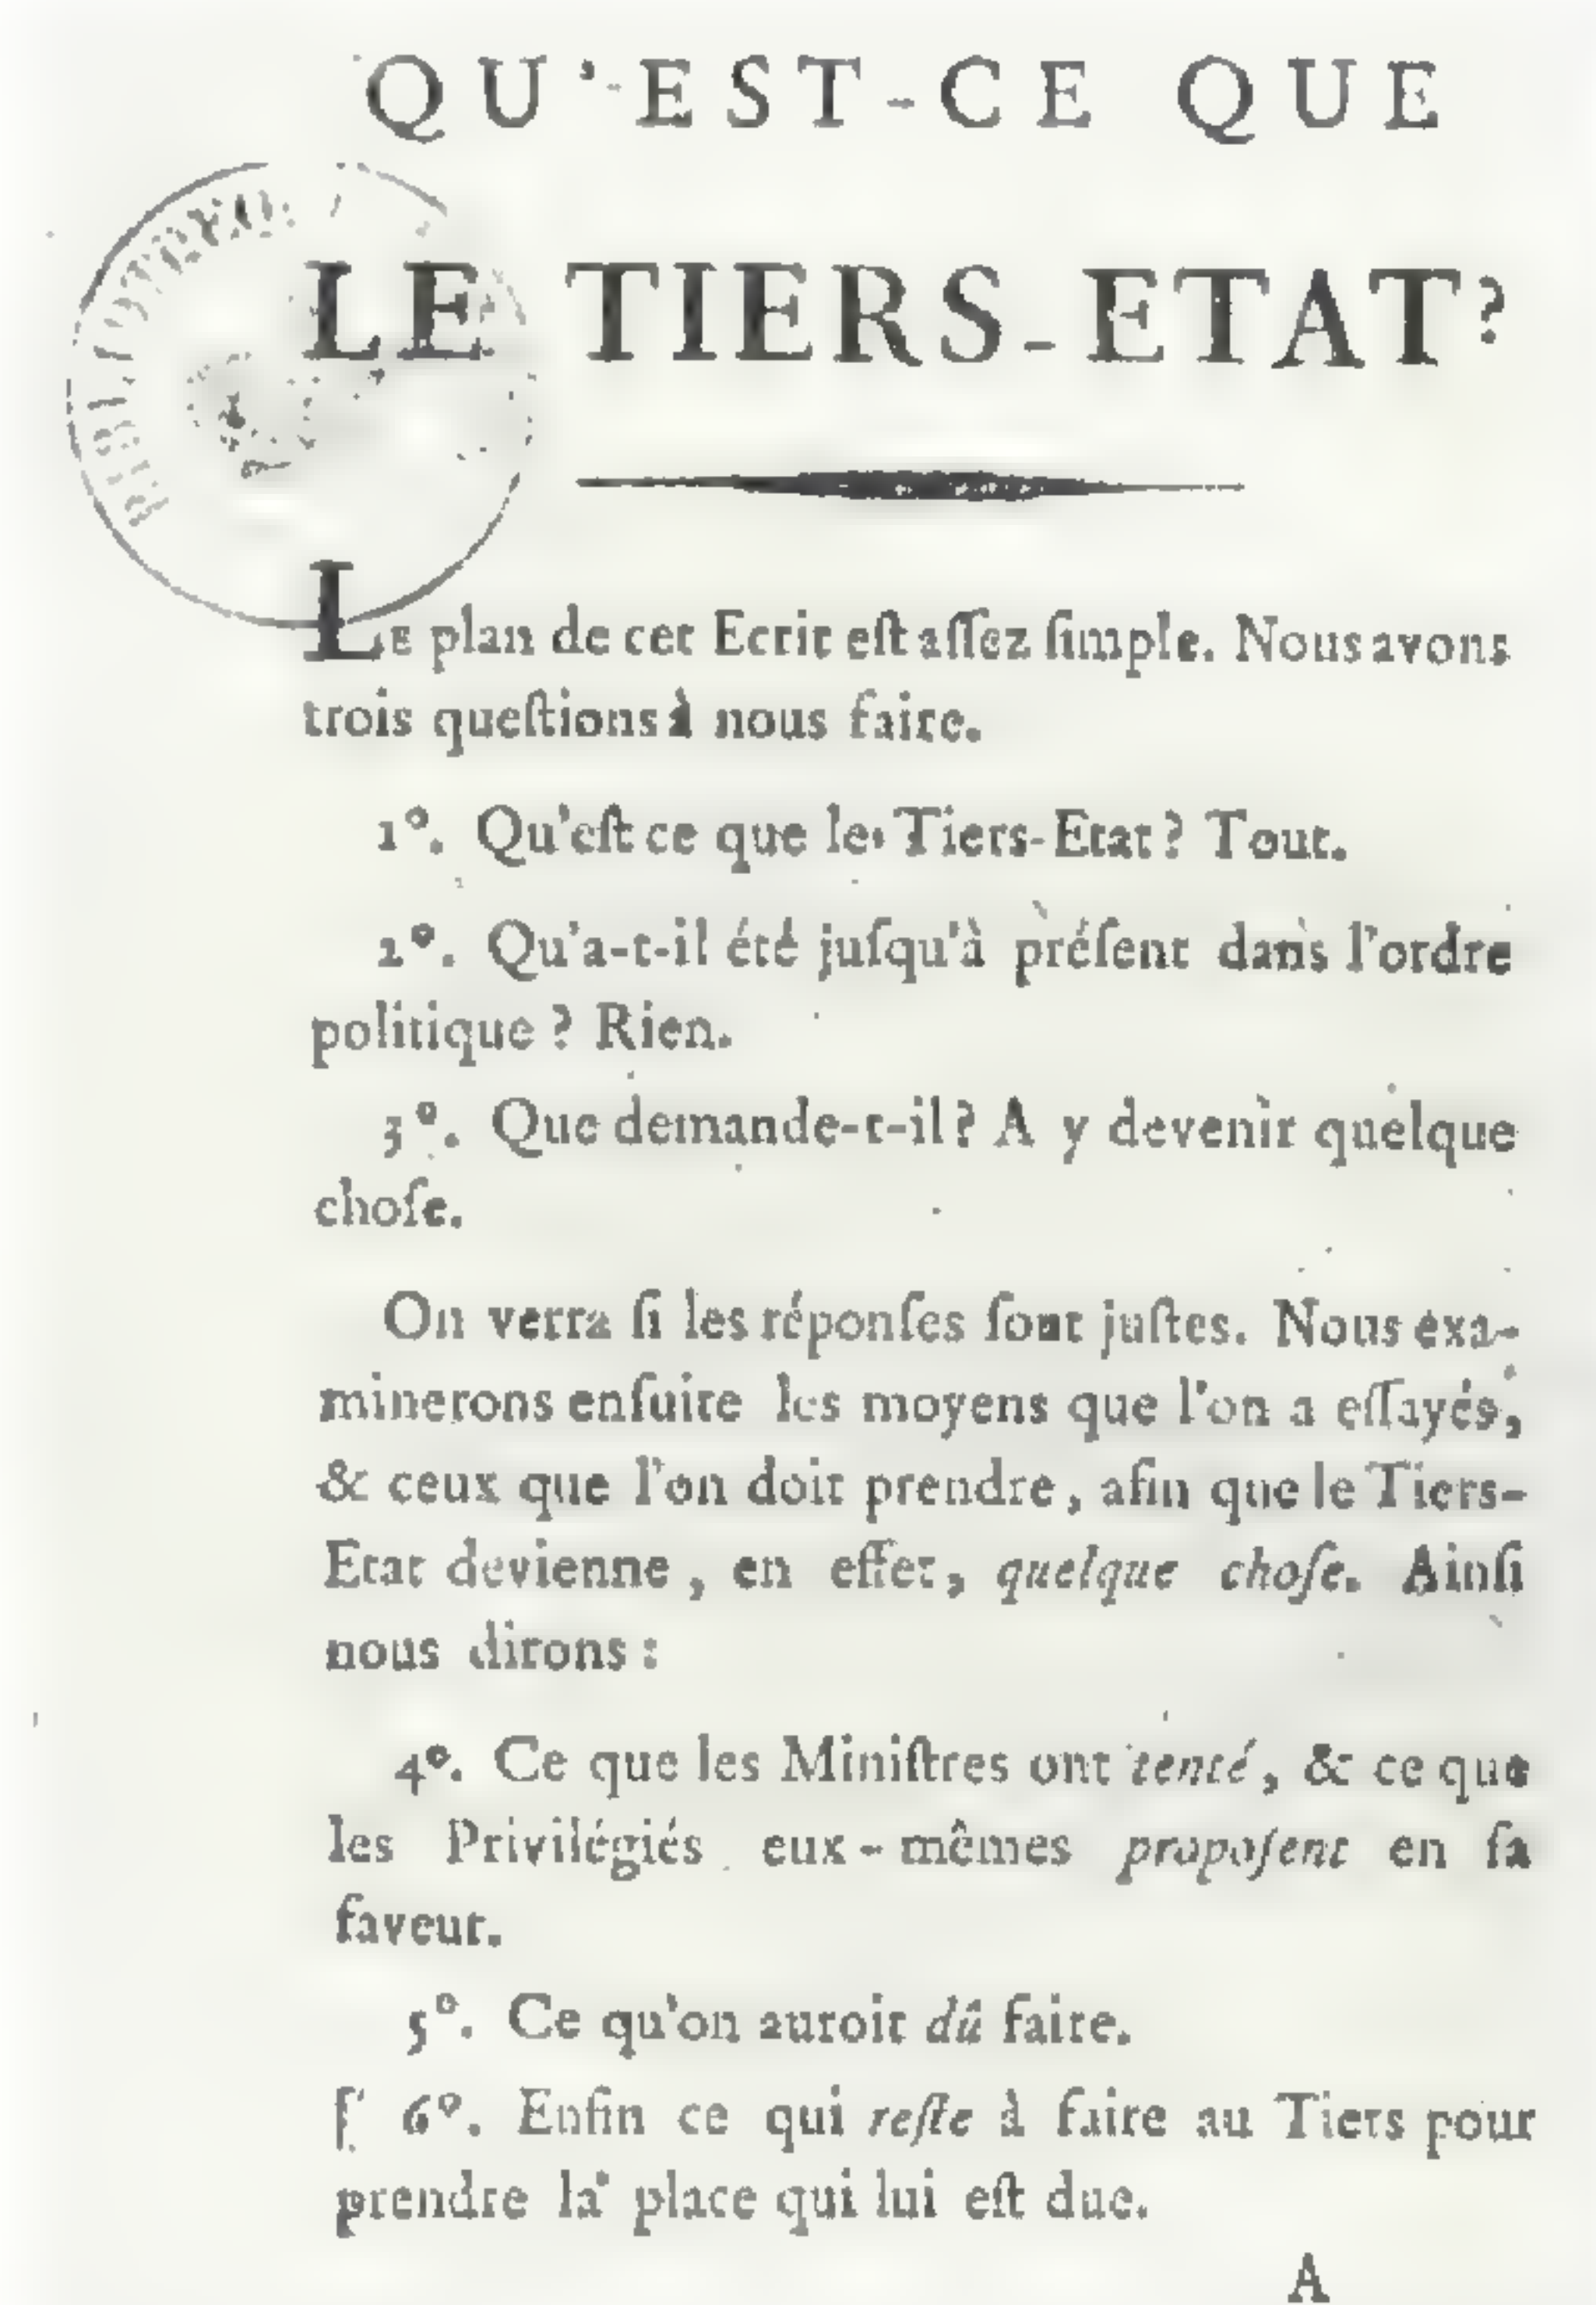 QU'-EST-CE QUE
LE TIERS-ETAT?
LE plan de cet Ecrit eſt aſſez ſimple. Nous avons
trois queſtions à nous faire.
1°. Qu'eſt ce que le Tiers-Etat ? Tout.
2°. Qu'a-t-il été juſqu'à préſent dans l'ordre
politique ? Rien.
3°. Que demande-t-il ? A y devenir quelque
choſe.
On verra ſi les réponſes ſont juſtes. Nous exa-
minerons enſuite les moyens que l'on a eſſayés,
& ceux que l'on doit prendre, afin que le Tiers-
Etat devienne, en effet, quelque choſe. Ainſi
nous dirons :
4°. Ce que les Miniſtres ont tenté, & ce que
les Privilégiés eux-mêmes propoſent en ſa
faveur.
5°. Ce qu'on auroit dû faire.
6°. Enfin ce qui reſte à faire au Tiers pour
prendre la place qui lui eſt due.
A